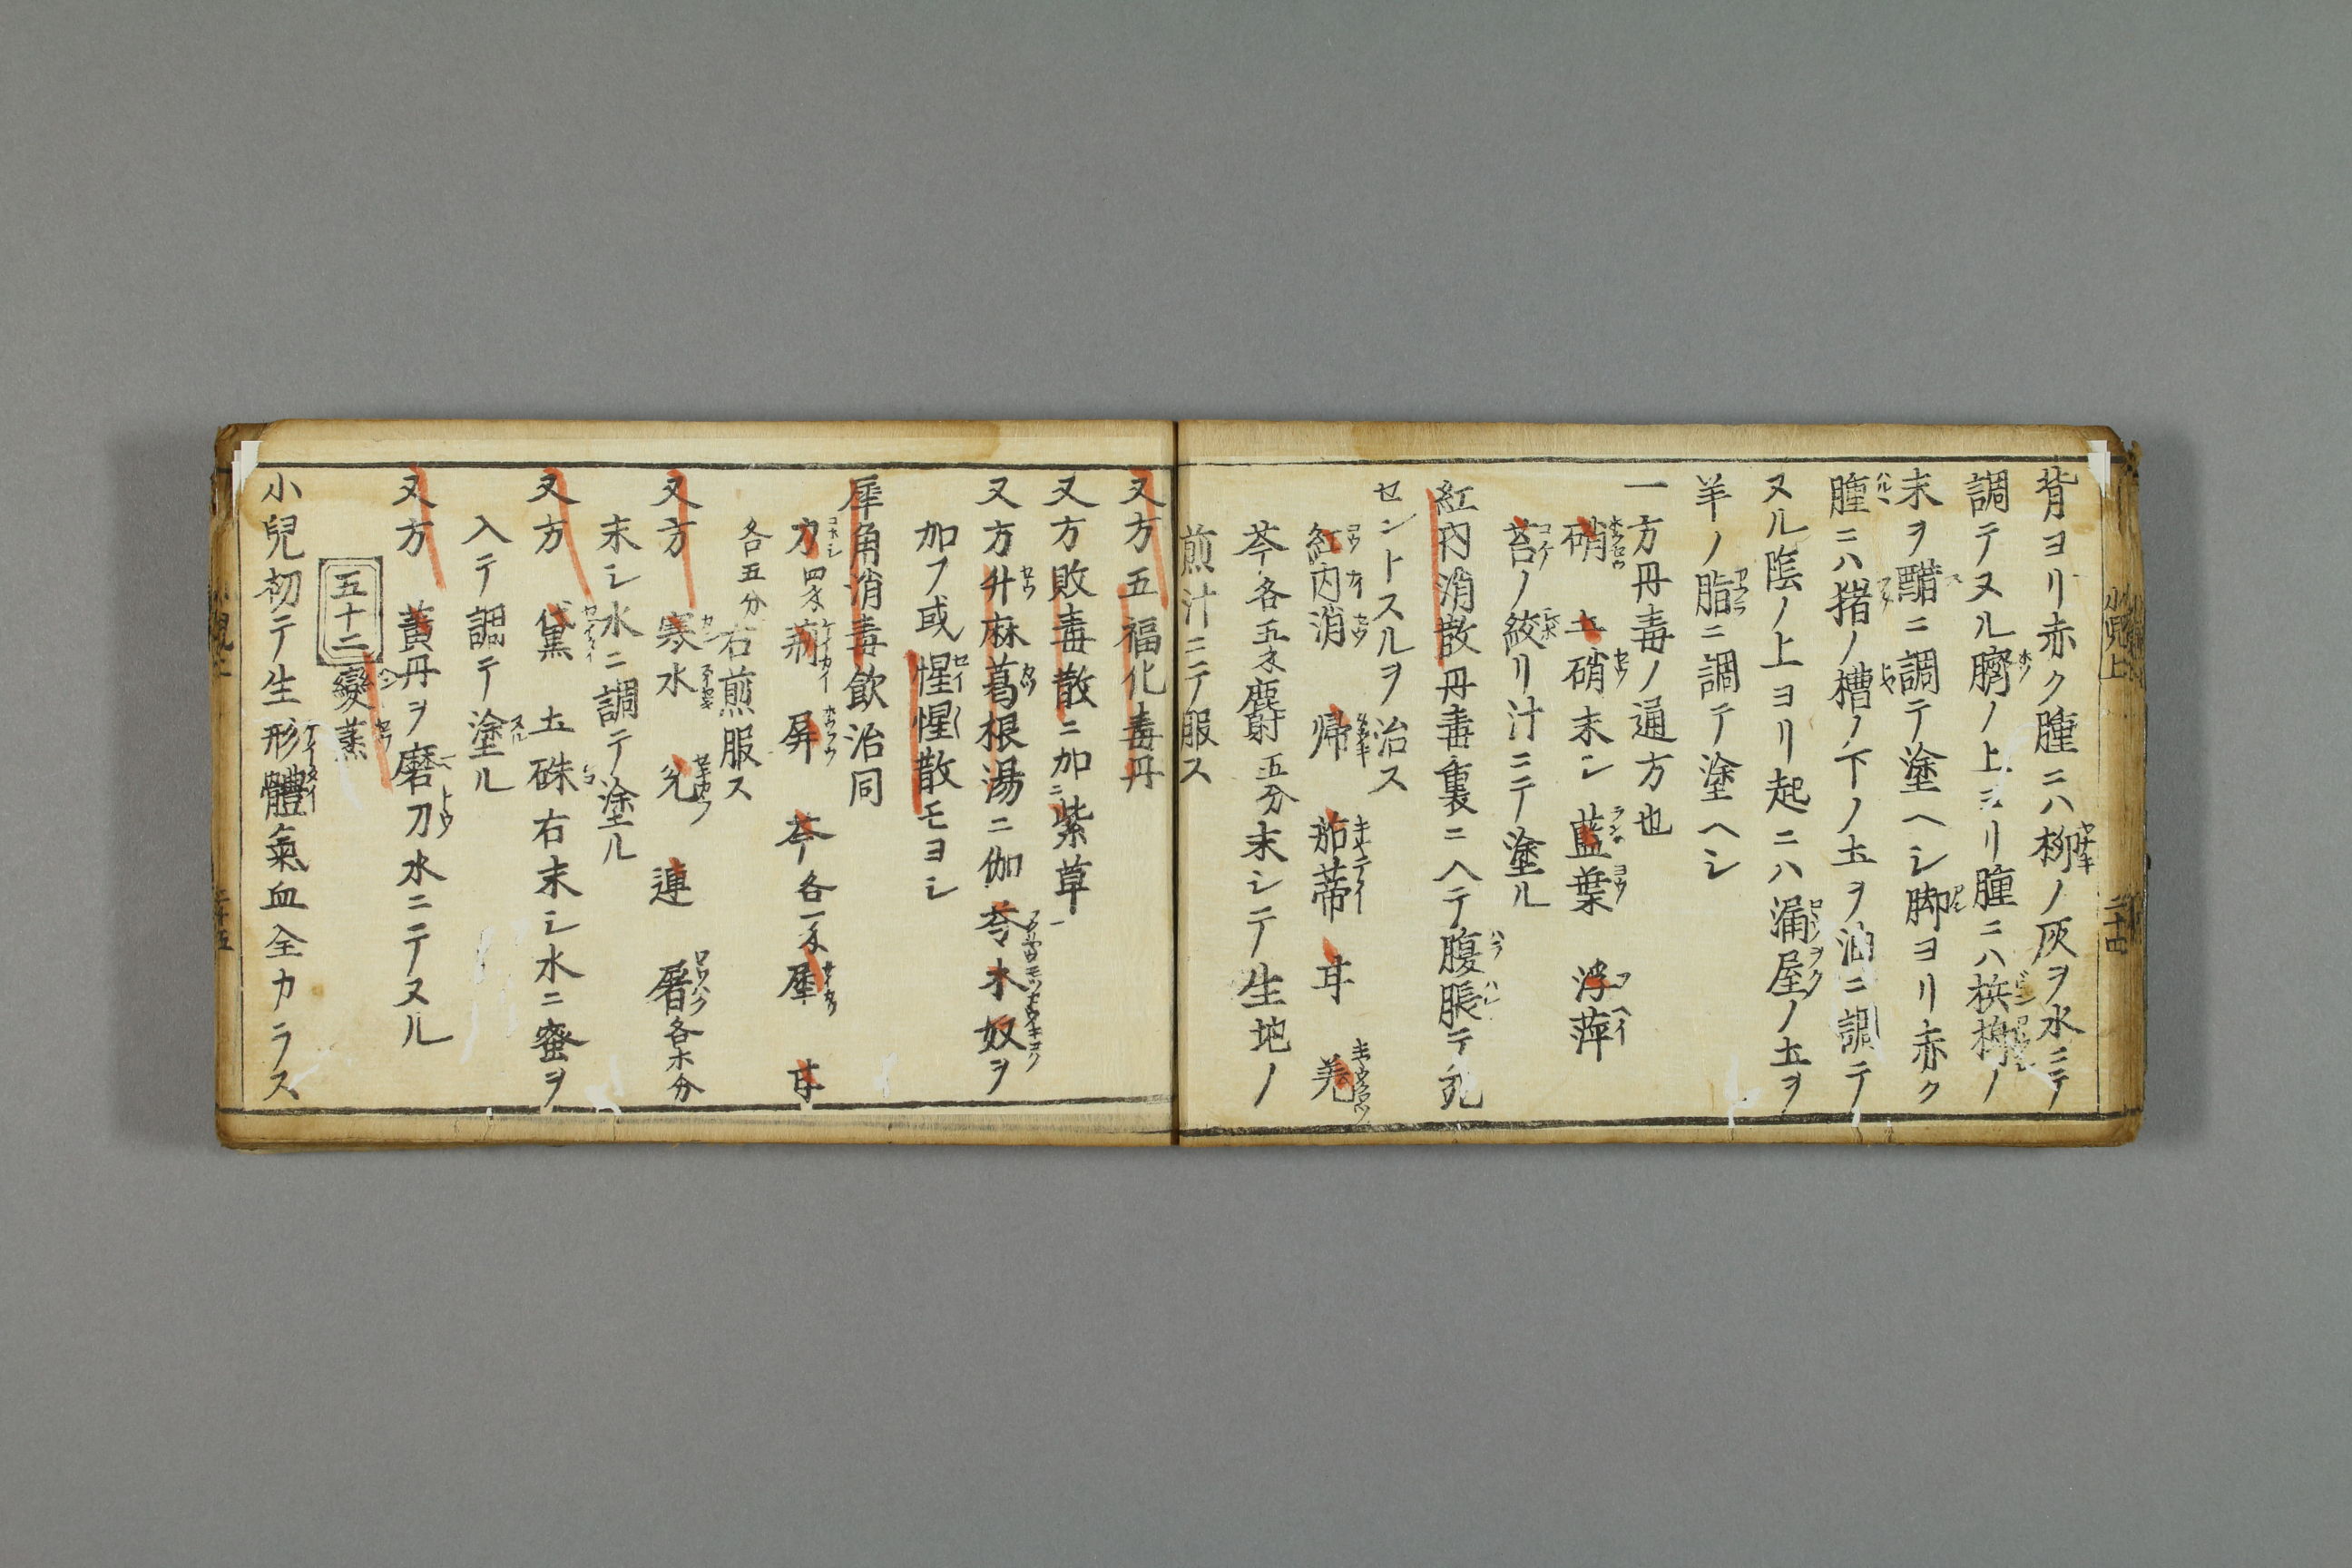 背ヨリ赤ク腫ニハ栁ノ灰ヲ水ニテ
調テヌル臍ノ上ヨリ腫ニハ梹榔ノ
末ヲ醋ニ調テ塗ヘシ脚ヨリ赤ク
腫ニハ猪ノ槽ノ下ノ土ヲ油ニ調テ
ヌル隂ノ上ヨリ起ニハ漏屋ノ土ヲ
羊ノ脂ニ調テ塗ヘシ
一方丹毒ノ通方也
硝 土硝末シ藍葉 浮萍
苔ノ絞リ汁ニテ塗ル
紅内消散丹毒裏ニ入テ腹脹テ死
セントスルヲ治ス
紅内消 帰 茄蒂 耳 羌
芩各五匁麝五分末シテ生地ノ
煎汁ニテ服ス
又方五福化毒丹
又方敗毒散ニ加紫草
又方升麻葛根湯ニ伽苓木奴ヲ
加フ或惺惺散モヨシ
犀角消毒飲治同
力四匁荊 屏 芩各一匁犀 甘
各五分右煎服ス
又方 寒水 芒 連 屠各木分
末シ水ニ調テ塗ル
又方 黛 土硃右末シ水ニ蜜ヲ
入テ調テ塗ル
又方 黄丹ヲ磨刀水ニテヌル
五十二變蒸
小兒初テ生形體氣血全カラス
小兒上
二十四